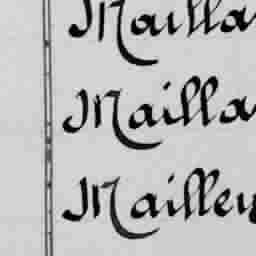 Mailla
Mailla
Mailley